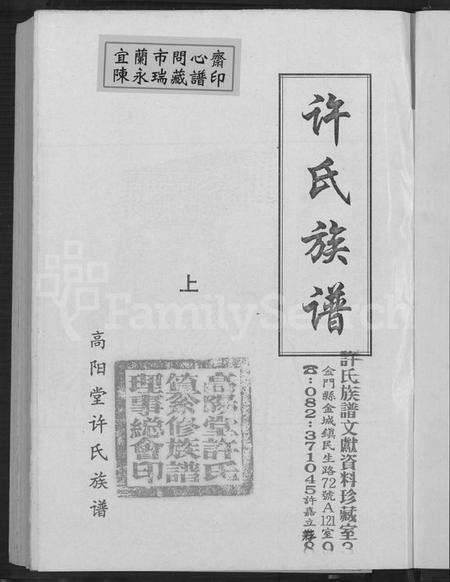 宜蘭市問心齋
陳永瑞藏譜印
许氏族谱
許氏族譜文獻資料珍藏室
金門縣金城鎮民生路72號A121室
☎:082:371045許嘉立
上
高阳堂许氏
賛纂修族譜
理事總會印
高阳堂许氏族谱
FamilySearch